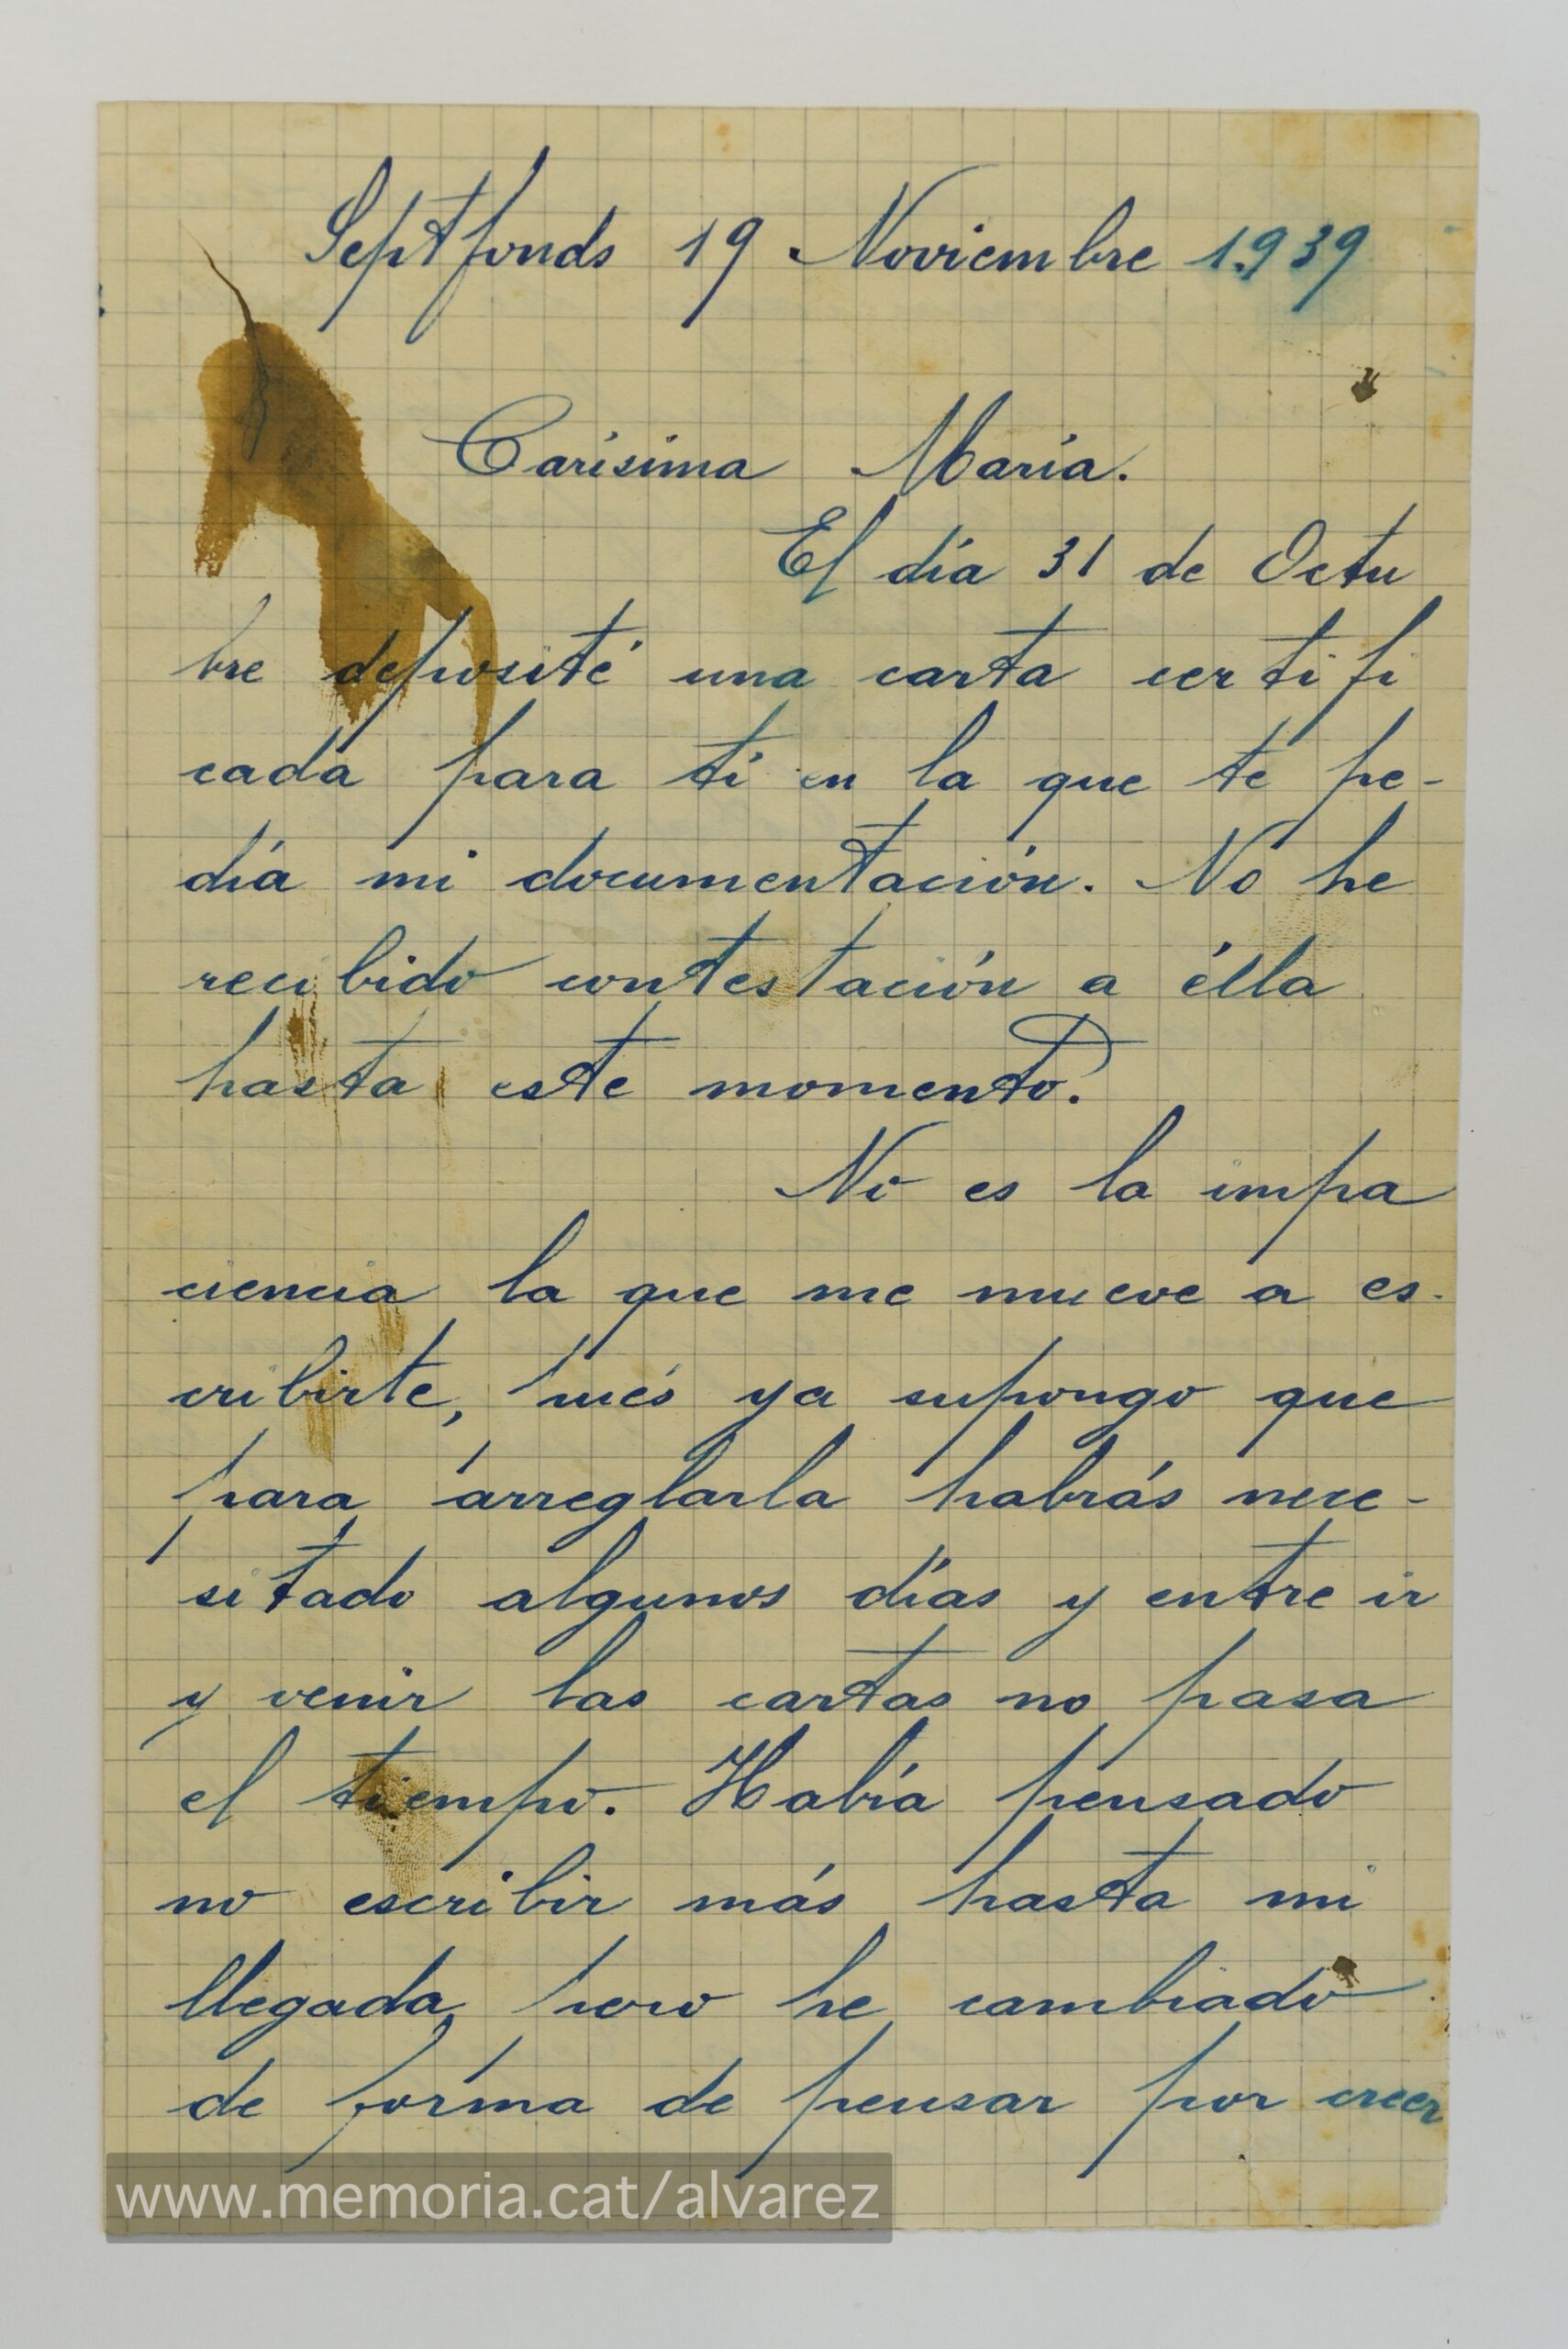 Septfonds 19 Noviembre 1939
Carísima María.
El día 31 de Octu
bre deposité una carta certifi
cada para tí en la que te pe-
día mi documentación. No he
recibido contestación a élla
hasta este momento.
No es la impa
ciencia la que me mueve a es-
cribirte, pués ya supongo que
para arreglarla habrás nece-
sitado algunos días y entre ir
y venir las cartas no pasa
el tiempo. Había pensado
no escribir más hasta mi
llegada, pero he cambiado
de forma de pensar por creer
www.memoria.cat/alvarez